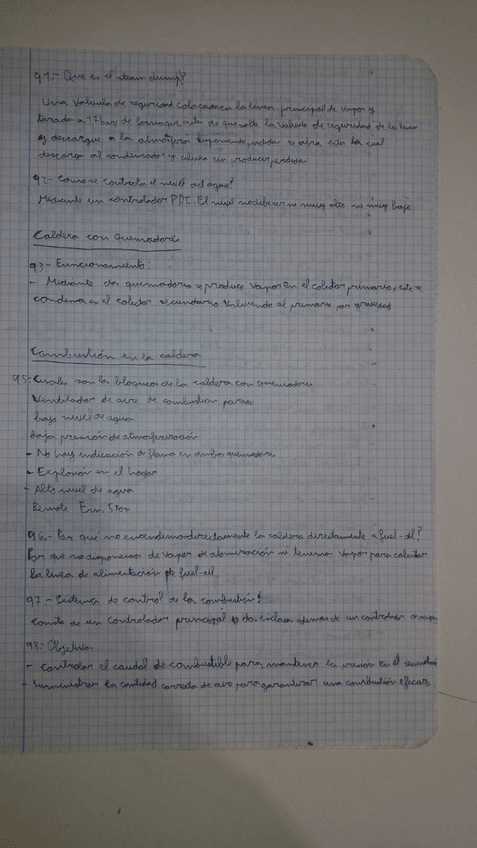 91.- Que es el steam dump?
Una Valvula de seguridad colocada en la linea principal de vapor y
tarada a 17 bars de forma que antes de que salte la valvula de seguridad de la linea
y descargue a la atmosfera suponiendo perdidas se abra esta la cual
descarga al condensador y circula sin producir perdida
92.- Como se controla el nivel del agua?
Mediante un controlador PID. El nivel no debe ser ni muy alto ni muy bajo
Caldera con Quemadores
93.- Funcionamiento:
- Mediante dos quemadores se produce vapor en el colector primario, este se
condensa en el colector secundario volviendo al primario por gravedad
Combustión en la caldera
95.- Cuales son los bloqueos de la caldera con quemadores
Ventilador de aire de combustion parado
bajo nivel de agua
baja presión de atomización
- No hay indicación de llama en ambos quemadores
- Explosión en el hogar
- Alto nivel de agua
Remote Em. Stop
96.- Por que no encendemos directamente la caldera directamente a fuel-oil?
Por que no disponemos de vapor de atomización ni tenemos vapor para calentar
la linea de alimentación de fuel-oil.
97.- Sistema de control de la combustión?
Consta de un controlador principal y dos esclavos ademas de un controlador
98.- Objetivo
- Controlar el caudal de combustible para mantener la presión en el
- Suministrar la cantidad correcta de aire para garantizar una combustión eficaz